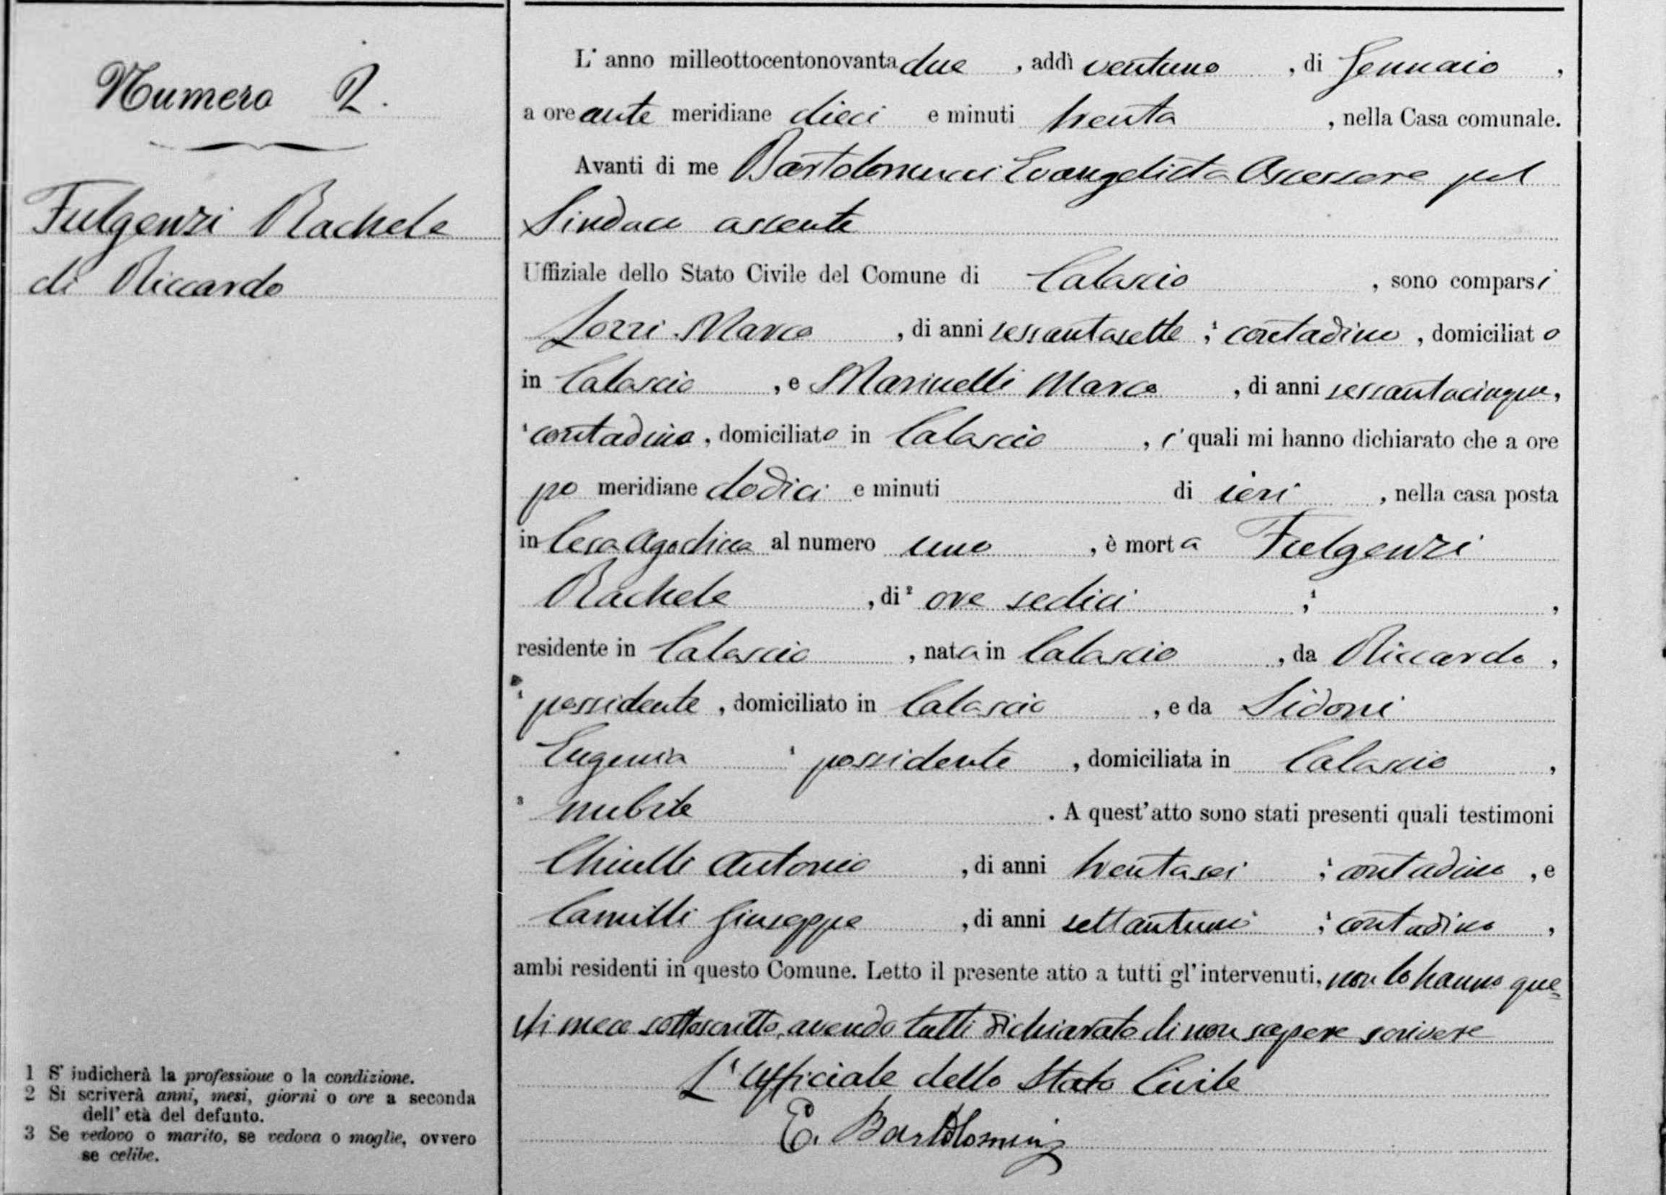 Numero 2.
Fulgenzi Rachele
di Riccardo
L' anno milleottocentonovantadue , addì ventuno , di Gennaio ,
a ore ante meridiane dieci e minuti trenta , nella Casa comunale.
Avanti di me Bartolomucci Evangelista Assessore pel
Sindaco assente
Uffiziale dello Stato Civile del Comune di Calascio , sono comparsi
Lozzi Marco , di anni sessantasette ; contadino , domiciliato
in Calascio , e Marinelli Marco , di anni sessantacinque,
¹ contadino , domiciliato in Calascio , i quali mi hanno dichiarato che a ore
po meridiane dodici e minuti di ieri , nella casa posta
in al numero uno , è morta Fulgenzi
Rachele , di ² ore sedici ; ,
residente in Calascio , nata in Calascio , da Riccardo ,
¹ possidente , domiciliato in Calascio , e da Sidoni
Eugenia ¹ possidente , domiciliata in Calascio ,
³ nubile . A quest'atto sono stati presenti quali testimoni
Antonio , di anni trentasei ; contadino , e
Camilli Giuseppe , di anni settantuno ; contadino ,
ambi residenti in questo Comune. Letto il presente atto a tutti gl'intervenuti, non lo hanno que=
sti meco sottoscritto, avendo tutti dichiarato di non sapere scrivere
L'Ufficiale dello Stato Civile
E. Bartolomucci
1 S' indicherà la professione o la condizione.
2 Si scriverà anni, mesi, giorni o ore a seconda
dell' età del defunto.
3 Se vedovo o marito, se vedova o moglie, ovvero
se celibe.